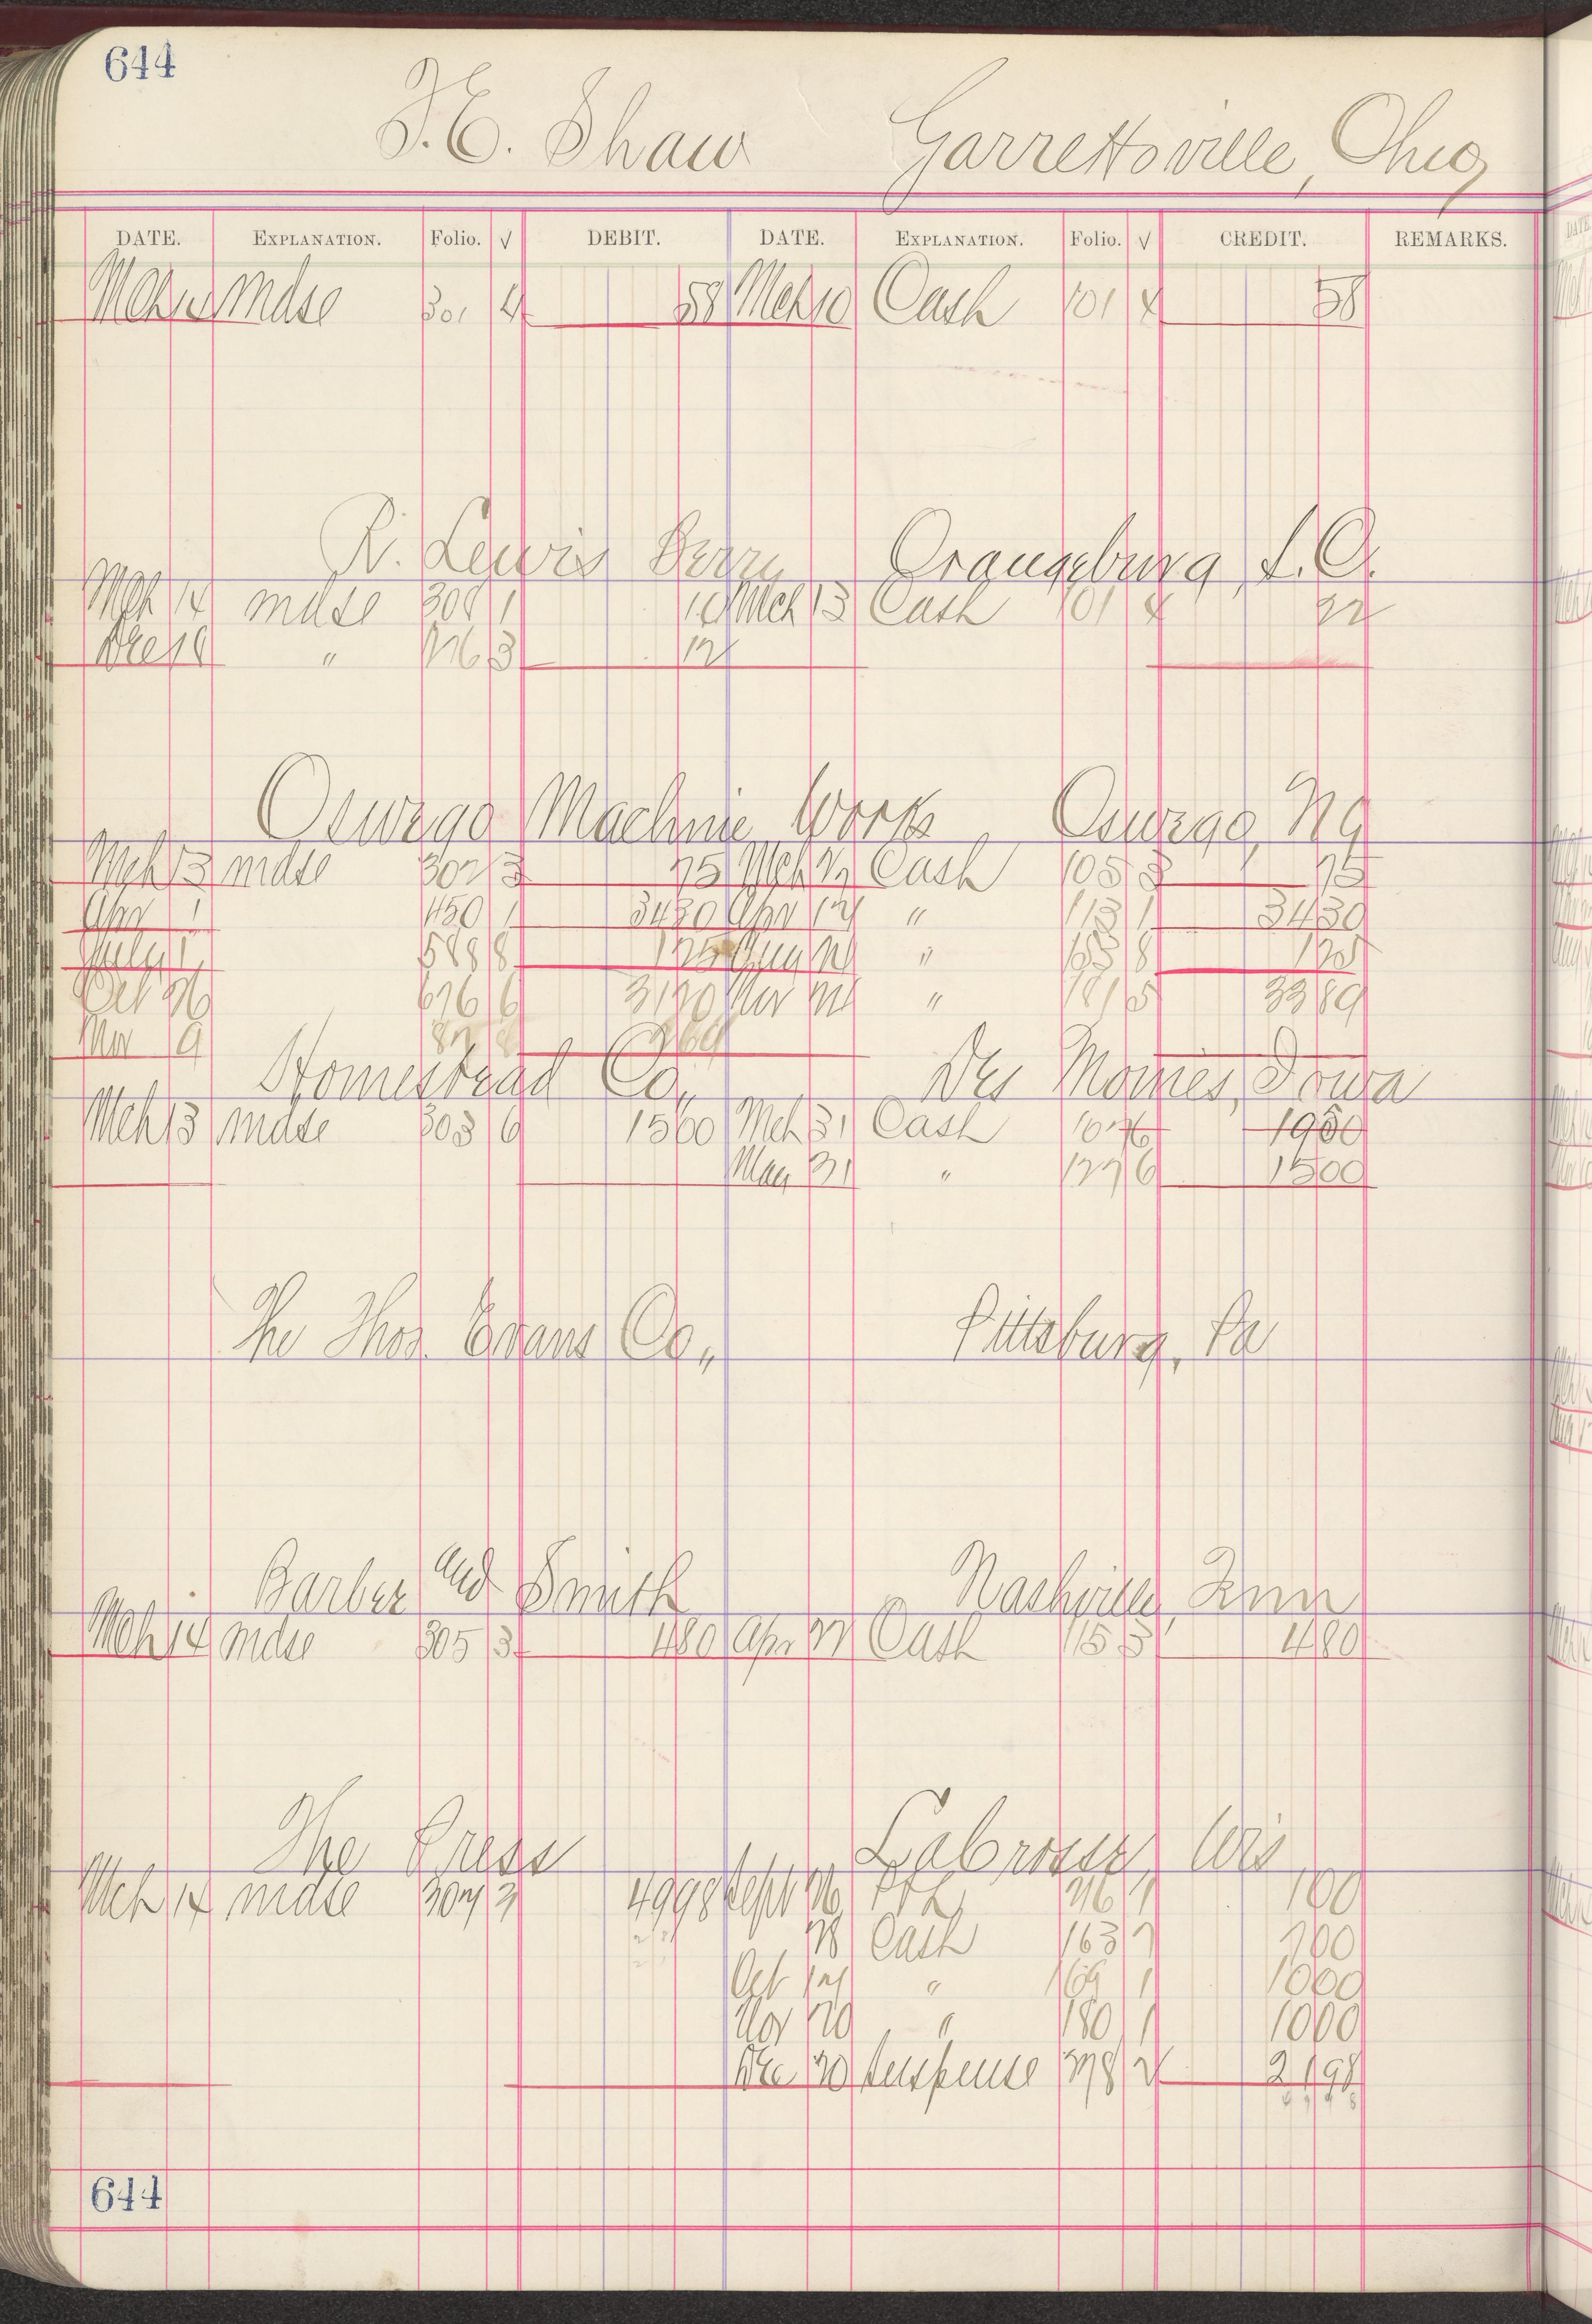 644
F. E. Shaw Garrettsville, Ohio
DATE. EXPLANATION. Folio. √ DEBIT. DATE. EXPLANATION. Folio. √ CREDIT. REMARKS.
Mch mdse 301 4 58 Mch 10 Cash 101 4 58
R. Lewis Berry Orangeburg, S.C.
Mch 14 mdse 1 Mch 13 Cash 101 4 22
Dec 10 " 3 12
Oswego Machine Works Oswego, N Y
Mch 13 mdse 302 3 75 Mch Cash 105 3 75
Apr 1 450 1 3430 Apr 12 " 113 1 3430
July 1 588 8 125 Aug " 155 8 125
Oct 26 676 6 3120 Nov " 181 5 3389
Nov 9 269
Homestead Co., Des Moines, Iowa
Mch 13 mdse 303 6 1560 Mch 31 Cash 107 6
May 31 " 127 6 1500
The Thos. Evans Co., Pittsburg, Pa
Barber and Smith Nashville, Tenn
Mch 14 mdse 305 3 480 Apr 27 Cash 115 3 480
The Press LaCrosse, Wis
Mch 14 mdse 307 4998 Sept 26 100
28 Cash 163 700
Oct 12 " 169 1 1000
Nov 20 " 180 1 1000
Dec 20 Suspense 2 2198
644